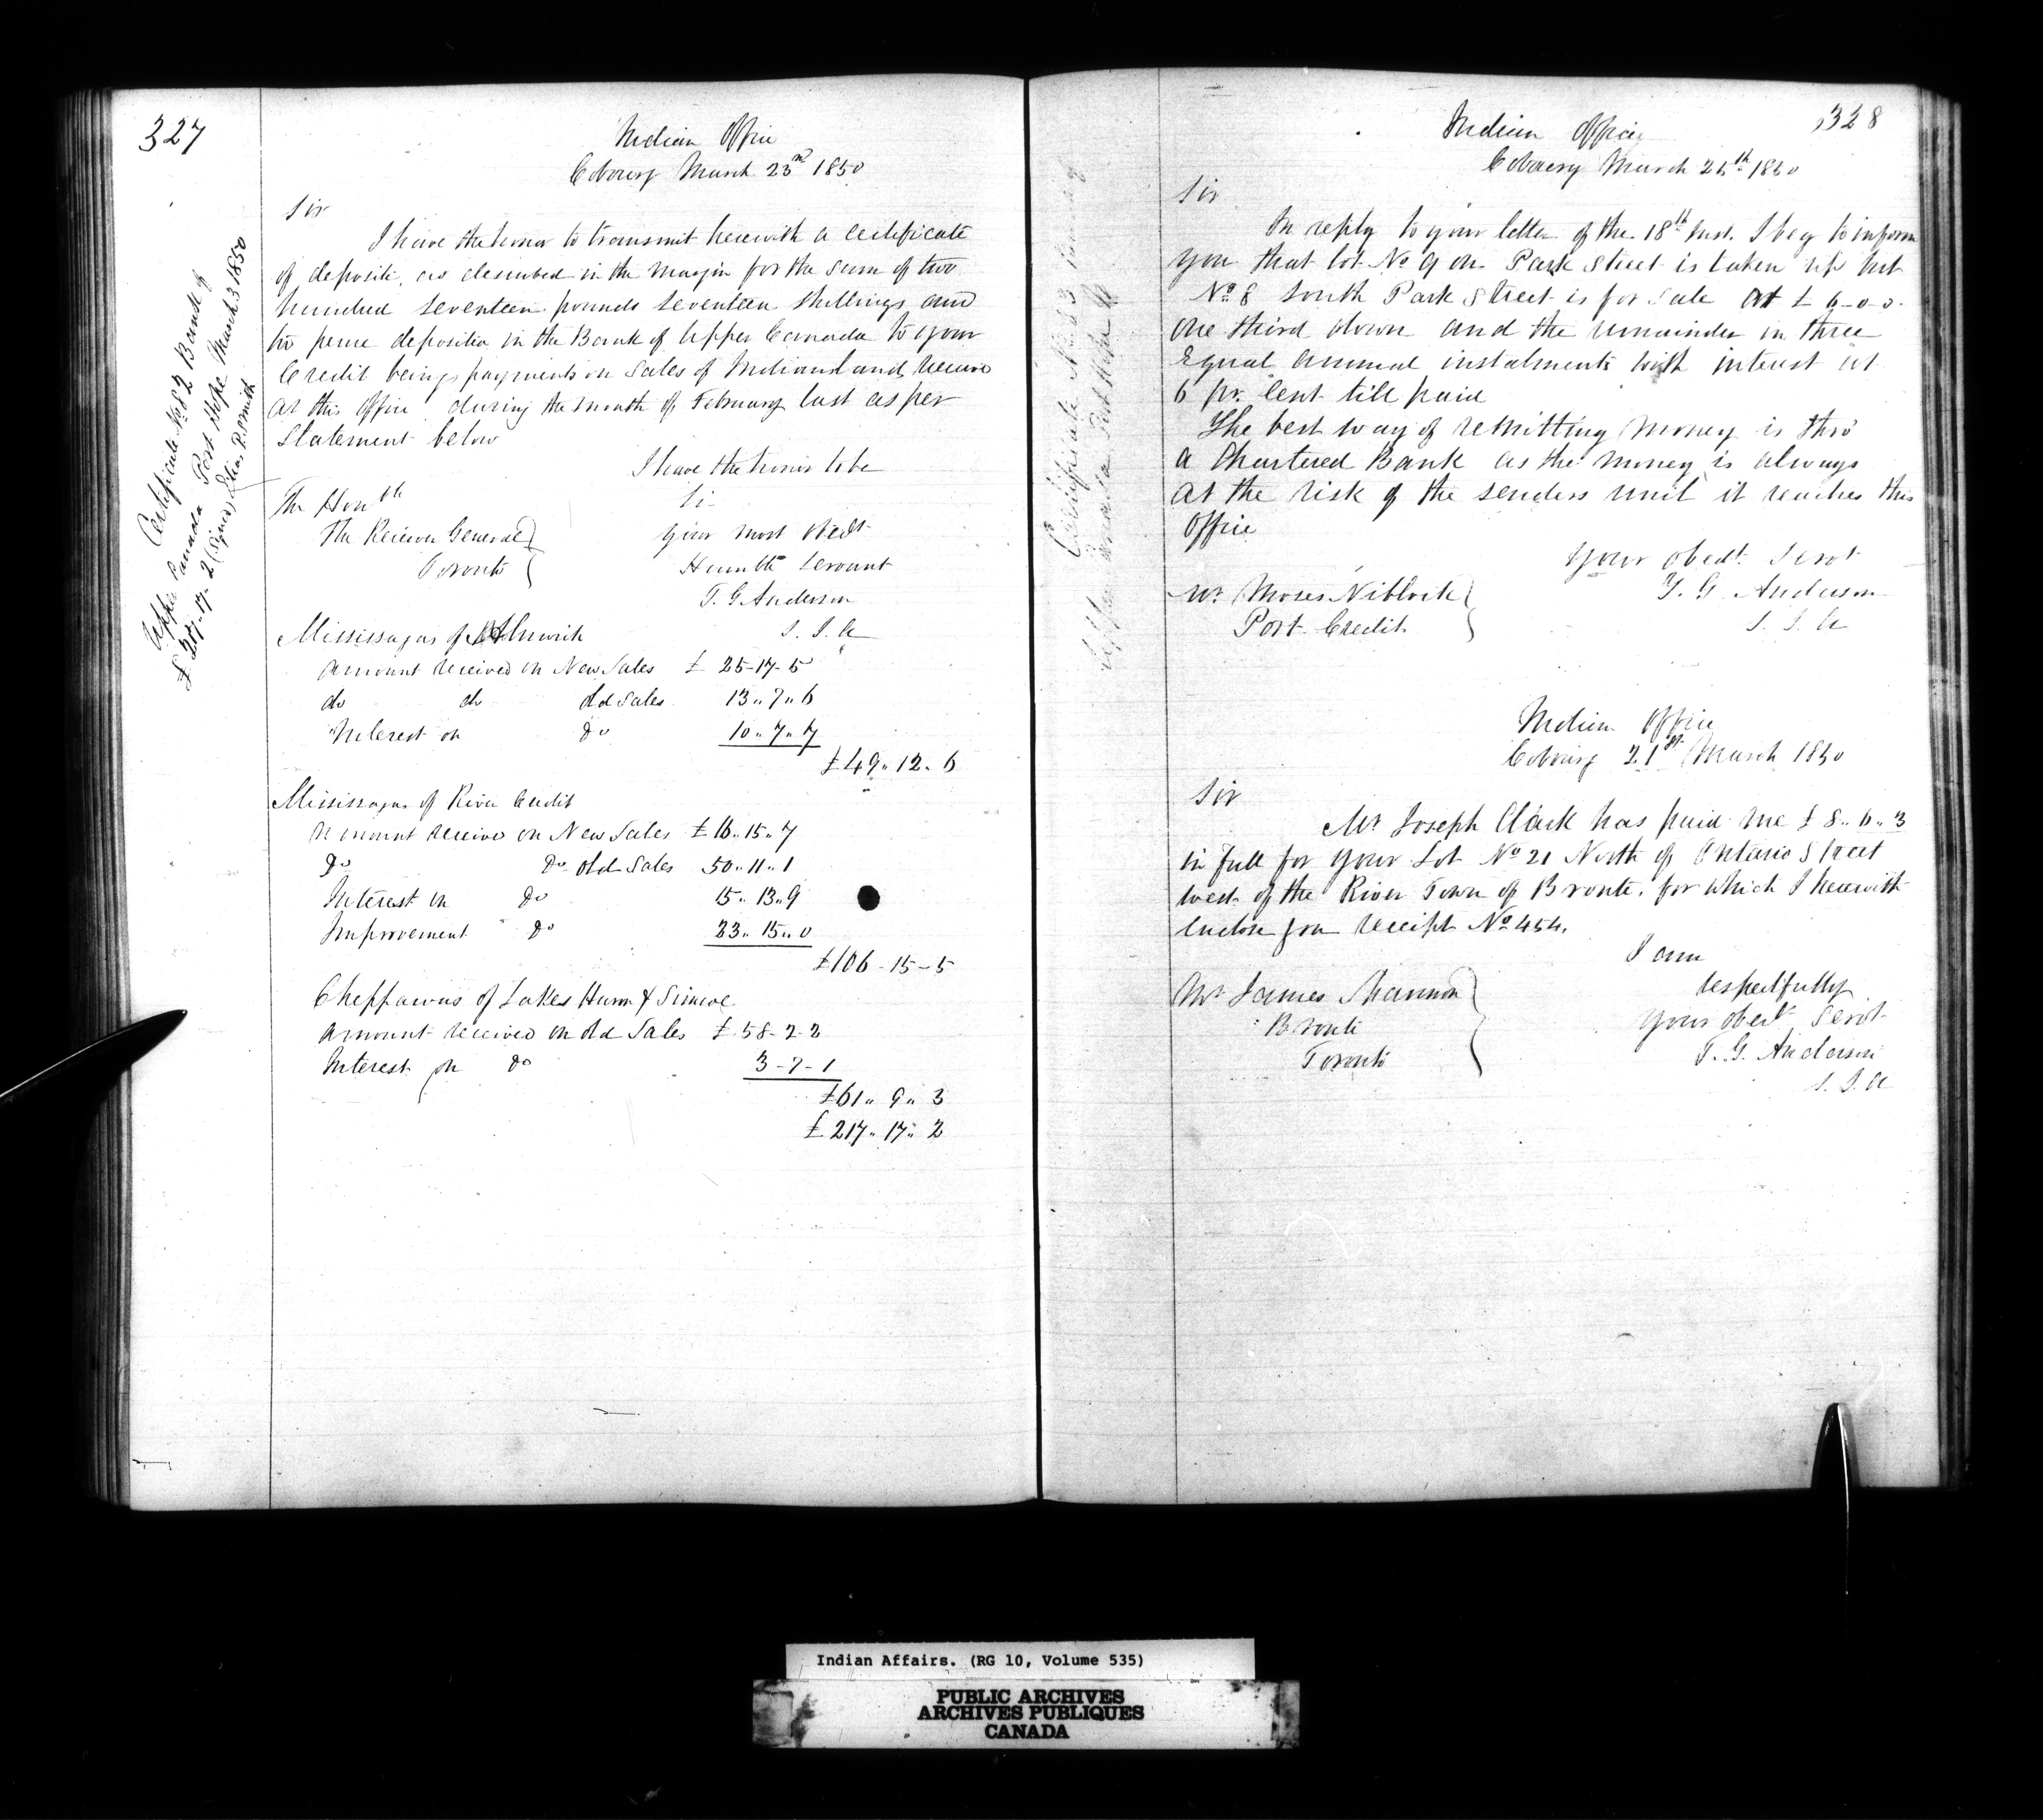 327
Indian Office
Cobourg March 23rd 1850
Sir
I have the honor to transmit herewith a certificate
of deposit, as described in the margin for the sum of two
hundred seventeen pounds seventeen shillings and
two pence deposited in the Bank of Upper Canada to your
Credit being payments on Sales of Indian Lands receive
at this Office during the month of February last as per
Statement below
I have the honor to be
Sir
The Honble
The Receiver General
Toronto
Your most Obedt
Humble Servant
T. G. Anderson
S. I. A
Certificate No. 82 Bank of
Upper Canada Port Hope March 3 1850
£ 217-17-2 (Signed) Elias P. Smith
Mississagas of Alnwick
Amount received on New Sales £ 25-17-5
do do Old Sales 13.. 7.. 6
Interest on Do 10.. 7.. 7
£49.. 12.. 6
Mississagas of River Credit
Amount receive on New Sales £16.. 15.. 7
Do Do Old Sales 50.. 11.. 1
Interest on Do 15.. 13.. 9
Improvement Do 23.. 15.. 0
£106-15-5
Cheppawas of Lakes Huron & Simcoe
Amount received on Old Sales £ 58-2-2
Interest on Do 3-7-1
£61.. 9.. 3
£217.. 17.. 2
328
Indian Office
Cobourg March 25th 1850
Sir
In reply to your letter of the 18th Inst. I beg to inform
you that lot No 9 on Park Street is taken up but
No 8 South Park Street is for Sale at £ 6-0-0
One third down and the remainder in three
Equal annual instalments with interest at
6 pr. Cent till paid
The best way of remitting money is thro
a Chartered Bank as the money is always
at the risk of the senders until it reaches this
Office
Your Obedt. Servt
T. G. Anderson
S. I. A
Mr Moses Niblock
Port Credit
Indian Office
Cobourg 21st March 1850
Sir
Mr Joseph Clark has paid me £ 8.. 6.. 3
in full for your Lot No 21 North of Ontario Street
West of the River Town of Bronte, for which I herewith
Enclose you receipt No 454.
I am
respectfully
Your Obedt Servt
T. G. Anderson
S. I. A
Mr James Shannon
Bronte
Toronto
Indian Affairs. (RG 10, Volume 535)
PUBLIC ARCHIVES
ARCHIVES PUBLIQUES
CANADA